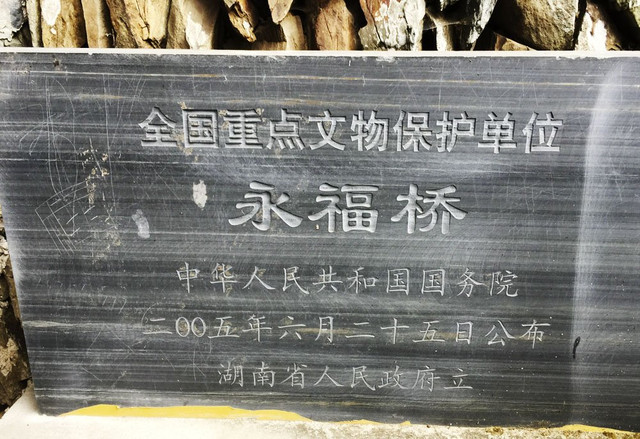 全国重点文物保护单位
永福桥
中华人民共和国国务院
二〇〇五年六月二十五日公布
湖南省人民政府立